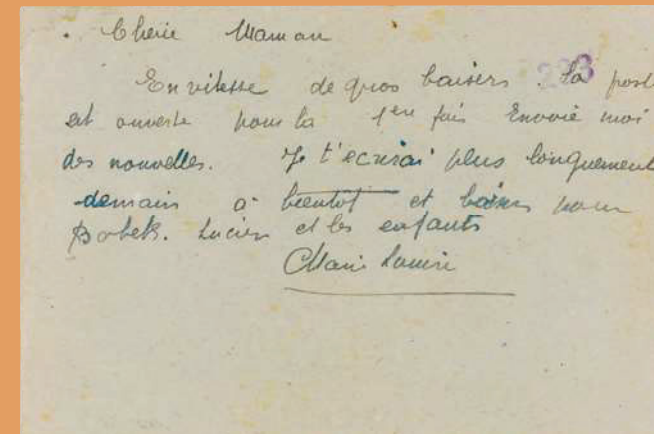 Cherie Maman
En vitesse de gros baisers. La post
est ouverte pour la 1ere fois Envoie moi
des nouvelles. Je t'ecrirai plus longuement
demain a bientôt et baisers pour
Bobek. Lucien et les enfants
Marie Louise